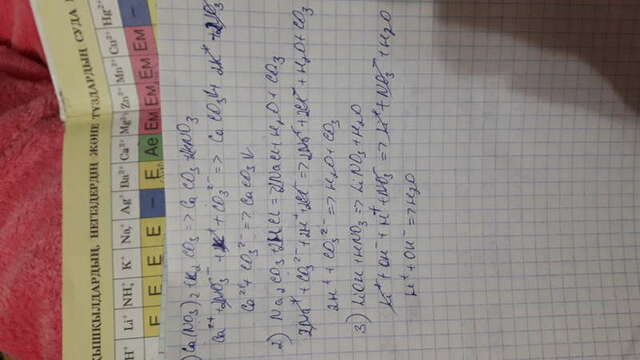 ҚЫШҚЫЛДАРДЫҢ, НЕГІЗДЕРДІҢ ЖӘНЕ ТҰЗДАРДЫҢ СУДА
H⁺ Li⁺ NH₄⁺ K⁺ Na⁺ Ag⁺ Ba²⁺ Ca²⁺ Mg²⁺ Zn²⁺ Mn²⁺ Cu²⁺ Hg²⁺
E E E E – E Ае Ем Ем Ем Ем –
Ca(NO₃)₂ + K₂CO₃ => CaCO₃ + 2KNO₃
Ca²⁺ + 2NO₃⁻ + 2K⁺ + CO₃²⁻ => CaCO₃↓ + 2K⁺ + 2NO₃⁻
Ca²⁺ + CO₃²⁻ => CaCO₃↓
2) Na₂CO₃ + 2HCl = 2NaCl + H₂O + CO₃
2Na⁺ + CO₃²⁻ + 2H⁺ + 2Cl⁻ => 2Na⁺ + 2Cl⁻ + H₂O + CO₃
2H⁺ + CO₃²⁻ => H₂O + CO₃
3) LiOH + HNO₃ => LiNO₃ + H₂O
Li⁺ + OH⁻ + H⁺ + NO₃⁻ => Li⁺ + NO₃⁻ + H₂O
H⁺ + OH⁻ => H₂O